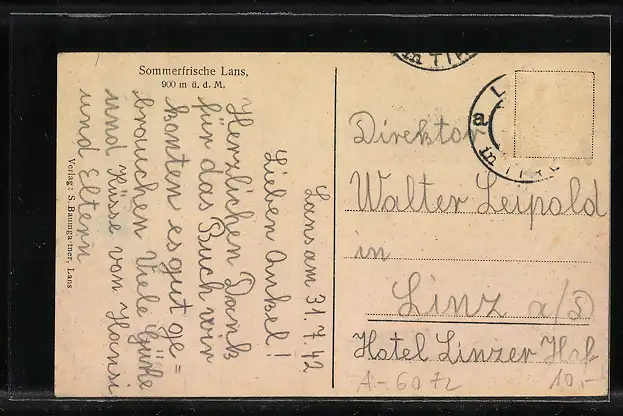 Sommerfrische Lans,
900 m ü. d. M.
Lans am 31.7.42
Lieben Onkel!
Herzlichen Dank
für das Buch wir
konten es gut ge=
brauchen Viele Grüße
und Küsse von Hansi
und Eltern
Verlag: S. Baumgartner, Lans
Direktor
Walter Leipold
in
Linz a/D
Hotel Linzer Hof
A-6072
10,-
a
in TIR